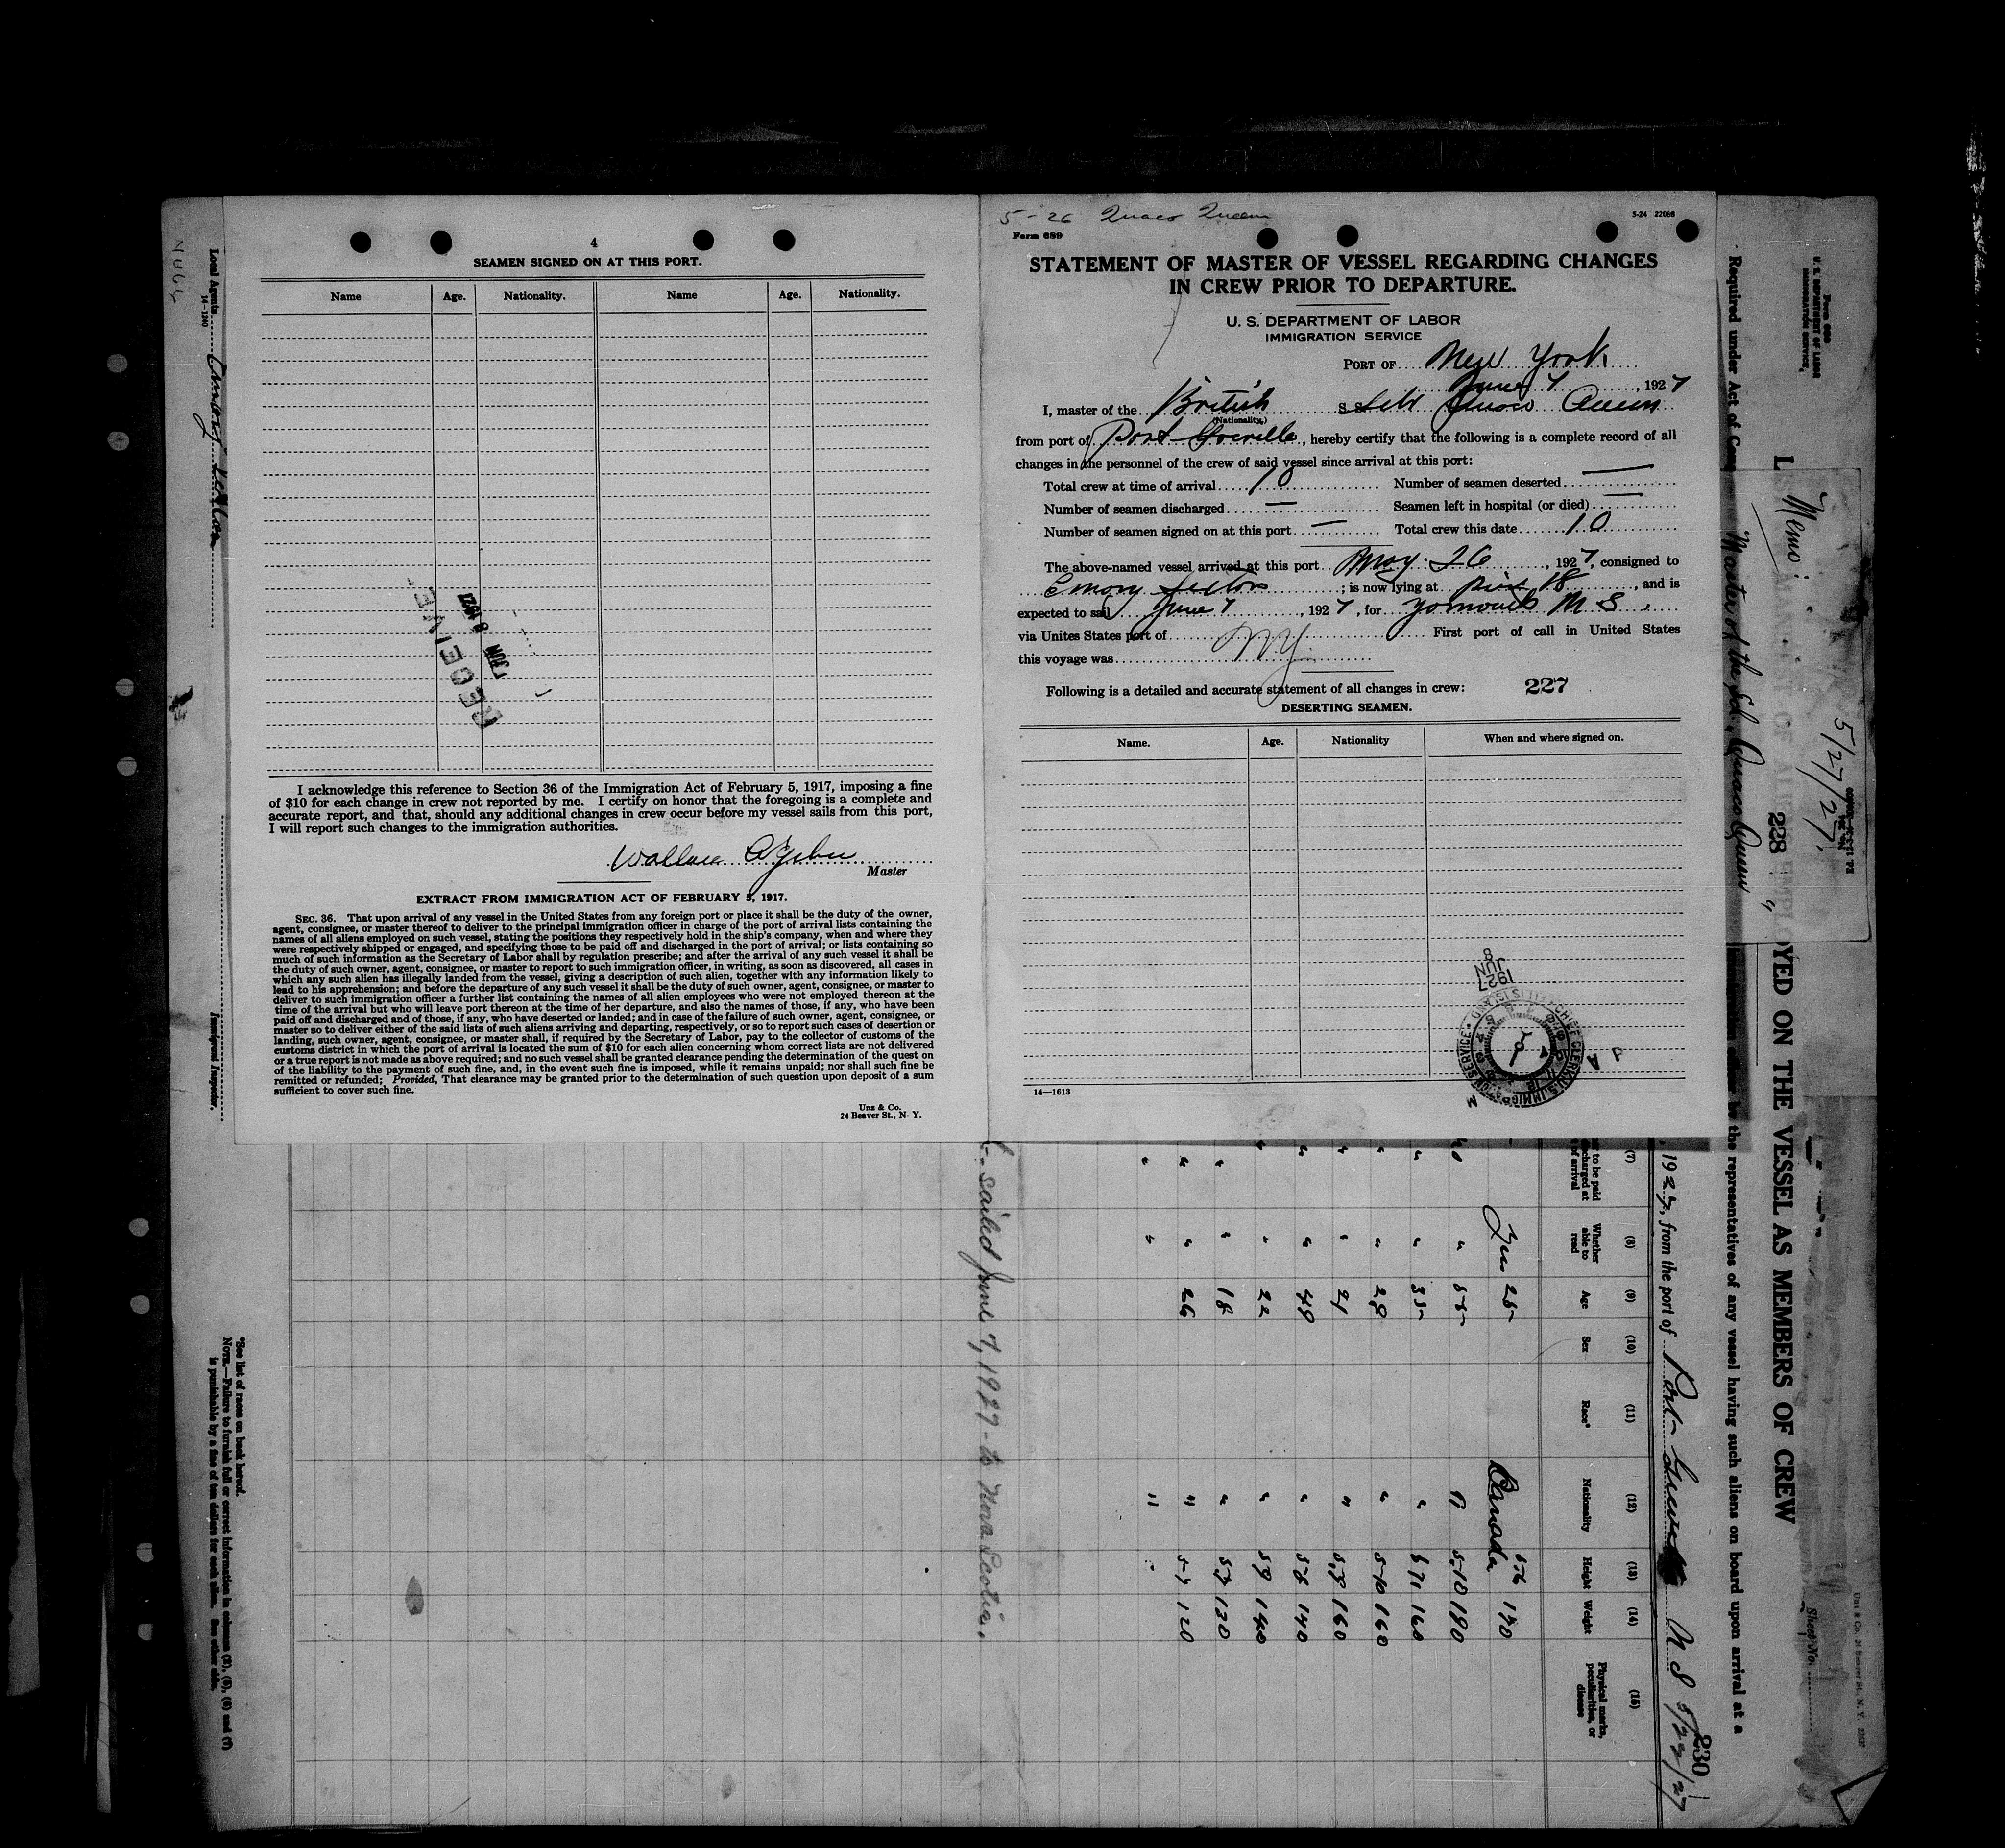 4
SEAMEN SIGNED ON AT THIS PORT.
Name Age. Nationality. Name Age. Nationality.
RECEIVE
JUN 8 1927
I acknowledge this reference to Section 36 of the Immigration Act of February 5, 1917, imposing a fine
of $10 for each change in crew not reported by me. I certify on honor that the foregoing is a complete and
accurate report, and that, should any additional changes in crew occur before my vessel sails from this port,
I will report such changes to the immigration authorities.
Wallace
Master
EXTRACT FROM IMMIGRATION ACT OF FEBRUARY 5, 1917.
SEC. 36. That upon arrival of any vessel in the United States from any foreign port or place it shall be the duty of the owner,
agent, consignee, or master thereof to deliver to the principal immigration officer in charge of the port of arrival lists containing the
names of all aliens employed on such vessel, stating the positions they respectively hold in the ship's company, when and where they
were respectively shipped or engaged, and specifying those to be paid off and discharged in the port of arrival; or lists containing so
much of such information as the Secretary of Labor shall by regulation prescribe; and after the arrival of any such vessel it shall be
the duty of such owner, agent, consignee, or master to report to such immigration officer, in writing, as soon as discovered, all cases in
which any such alien has illegally landed from the vessel, giving a description of such alien, together with any information likely to
lead to his apprehension; and before the departure of any such vessel it shall be the duty of such owner, agent, consignee, or master to
deliver to such immigration officer a further list containing the names of all alien employees who were not employed thereon at the
time of the arrival but who will leave port thereon at the time of her departure, and also the names of those, if any, who have been
paid off and discharged and of those, if any, who have deserted or landed; and in case of the failure of such owner, agent, consignee, or
master so to deliver either of the said lists of such aliens arriving and departing, respectively, or so to report such cases of desertion or
landing, such owner, agent, consignee, or master shall, if required by the Secretary of Labor, pay to the collector of customs of the
customs district in which the port of arrival is located the sum of $10 for each alien concerning whom correct lists are not delivered
or a true report is not made as above required; and no such vessel shall be granted clearance pending the determination of the quest on
of the liability to the payment of such fine, and, in the event such fine is imposed, while it remains unpaid; nor shall such fine be
remitted or refunded; Provided, That clearance may be granted prior to the determination of such question upon deposit of a sum
sufficient to cover such fine.
Unz & Co.
24 Beaver St., N. Y.
5-26 Quaco Queen
5-24 22066
Form 689
STATEMENT OF MASTER OF VESSEL REGARDING CHANGES
IN CREW PRIOR TO DEPARTURE.
U. S. DEPARTMENT OF LABOR
IMMIGRATION SERVICE
PORT OF New York
June 7, 1927
I, master of the British S. S. Sch Quaco Queen
(Nationality.)
from port of Port Greville, hereby certify that the following is a complete record of all
changes in the personnel of the crew of said vessel since arrival at this port:
Total crew at time of arrival 10 Number of seamen deserted —
Number of seamen discharged — Seamen left in hospital (or died) —
Number of seamen signed on at this port — Total crew this date 10
The above-named vessel arrived at this port May 26, 1927, consigned to
Emory ; is now lying at Pier 18, and is
expected to sail June 7, 1927, for
via Unites States port of First port of call in United States
this voyage was NY
Following is a detailed and accurate statement of all changes in crew: 227
DESERTING SEAMEN.
Name. Age. Nationality When and where signed on.
1927 JUN 8
14—1613
Local Agents
14-1240
Immigrant Inspector.
Form 680
U. S. DEPARTMENT OF LABOR
IMMIGRATION SERVICE
Required under Act of Cong
Memo:
Master of the Sch. Quaco Queen
5/27/27.
228
YED ON THE VESSEL AS MEMBERS OF CREW
the representatives of any vessel having such aliens on board upon arrival at a
, 1927, from the port of Port Greville N S 5/22/27
230
Sheet No.
(7) (8) (9) (10) (11) (12) (13) (14) (15)
Whether able to read Age Sex Race* Nationality Height Weight Physical marks, peculiarities, or disease
Yes 25 Canada 5-6 170
" 55 " 5-10 190
" 35 " 5 11 160
" 28 " 5-10 160
" 21 " 5,9 160
" 49 " 5-8 140
" 22 " 5 9 140
" 18 " 5 7 130
" 26 " 5-7 120
" "
sailed June 7, 1927 - to Nova Scotia.
*See list of races on back hereof.
NOTE.—Failure to furnish full or correct information in columns (3), (5), (6) and (7)
is punishable by a fine of ten dollars for each alien. See other side.